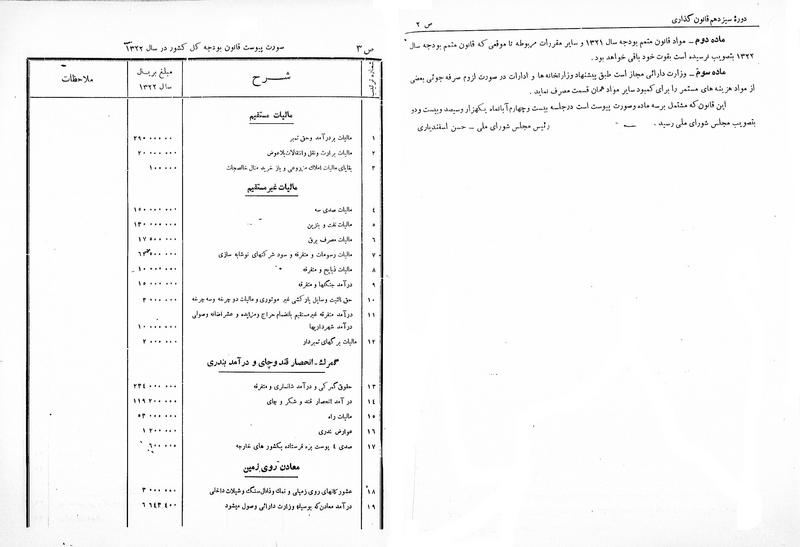 دورهٔ سیزدهم قانون گذاری
ص ۲
ماده دوم ـ مواد قانون متمم بودجه سال ۱۳۲۱ و سایر مقررات مربوطه تا موقعی که قانون متمم بودجه سال
۱۳۲۲ بتصویب نرسیده است بقوت خود باقی خواهد بود.
ماده سوم ـ وزارت دارائی مجاز است طبق پیشنهاد وزارتخانه ها و ادارات در صورت لزوم صرفه جوئی بعضی
از مواد هزینه های مستمر را برای کمبود سایر مواد همان قسمت مصرف نماید .
این قانون که مشتمل برسه ماده وصورت پیوست است درجلسه بیست وچهارم آبانماه یکهزار وسیصد وبیست ودو
بتصویب مجلس شورای ملی رسید .
رئیس مجلس شورای ملی ـ حسن اسفندیاری
ص ۳
صورت پیوست قانون بودجه کل کشور در سال ۱۳۲۲
شماره ترتیب
شـــرح
مبلغ بریال
سال ۱۳۲۲
ملاحظات
مالیات مستقیم
۱ مالیات بردرآمد وحق تمبر ۲۹۰ ۰۰۰ ۰۰۰
۲ مالیات برارث ونقل وانتقالات بلاعوض ۲۰ ۰۰۰ ۰۰۰
۳ بقایای مالیات املاک مزروعی و باز خرید منال خالصجات ۱۰۰ ۰۰۰
مالیات غیر مستقیم
۴ مالیات صدی سه ۱۵۰ ۰۰۰ ۰۰۰
۵ مالیات نفت و بنزین ۱۳۰ ۰۰۰ ۰۰۰
۶ مالیات مصرف برق ۱۷ ۵۰۰ ۰۰۰
۷ مالیات رسومات و متفرقه و سود شرکتهای نوشابه سازی
۸ مالیات ذبایح و متفرقه ۱۰ ۰۰۰ ۰۰۰
۹ درآمد جنگلها و متفرقه ۱۵ ۰۰۰ ۰۰۰
۱۰ حق تثبت وسایل بارکشی غیر موتوری و مالیات دو چرخه وسه چرخه ۳ ۰۰۰ ۰۰۰
۱۱ درآمد متفرقه غیرمستقیم بانضمام حراج ومزایده و عشراضافه وصولی
درآمد شهرداریها ۱۰ ۰۰۰ ۰۰۰
۱۲ مالیات برگهای تمبردار ۲ ۰۰۰ ۰۰۰
گمرک ـ انحصار قند وچای و درآمد بندری
۱۳ حقوق گمرکی و درآمد و متفرقه ۲۳۴ ۰۰۰ ۰۰۰
۱۴ درآمد انحصار قند و شکر و چای ۱۱۹ ۲۰۰ ۰۰۰
۱۵ مالیات راه ۵۳ ۰۰۰ ۰۰۰
۱۶ عوارض بندری ۱ ۲۰۰ ۰۰۰
۱۷ صدی ۴ پوست بره فرستاده بکشور های خارجه ۶۰۰ ۰۰۰
معادن روی زمین
۱۸ عشر کانهای روی زمینی و نمک وذغال سنگ وشیلات داخلی ۳ ۰۰۰ ۰۰۰
۱۹ درآمد معادن که بوسیله وزارت دارائی وصول میشود ۶ ۶۴۳ ۴۰۰